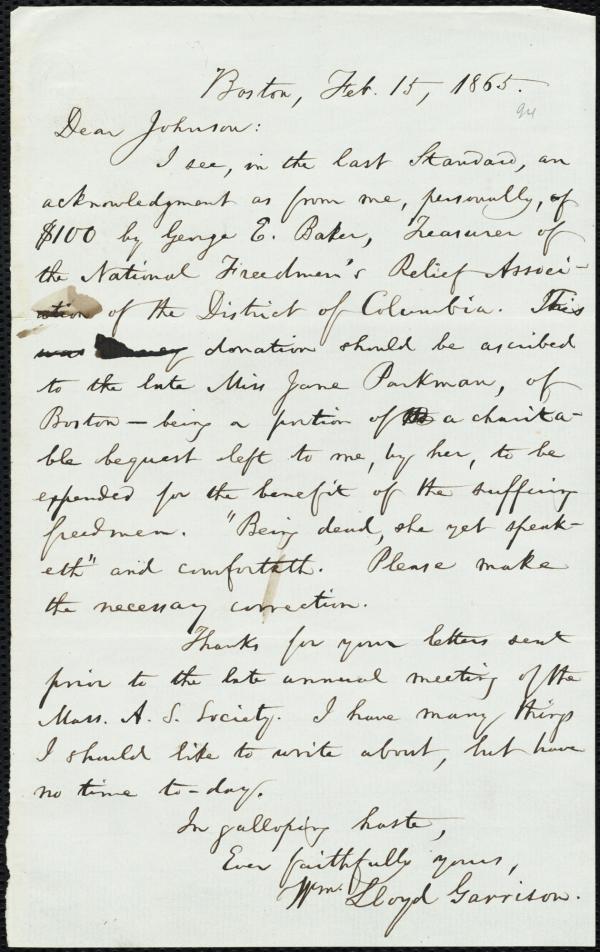 Boston, Feb. 15, 1865.
Dear Johnson:
I see, in the last Standard, an
acknowledgment as from me, personally, of
$100 by George E. Baker, Treasurer of
the National Freedmen's Relief Associ-
ation of the District of Columbia. This
was donation should be ascribed
to the late Miss Jane Parkman, of
Boston — being a portion of a charita-
ble bequest left to me, by her, to be
expended for the benefit of the suffering
freedmen. "Being dead, she yet speak-
eth" and comforteth. Please make
the necessary correction.
Thanks for your letters sent
prior to the late annual meeting of the
Mass. A. S. Society. I have many things
I should like to write about, but have
no time to-day.
In galloping haste,
Ever faithfully yours,
Wm. Lloyd Garrison.